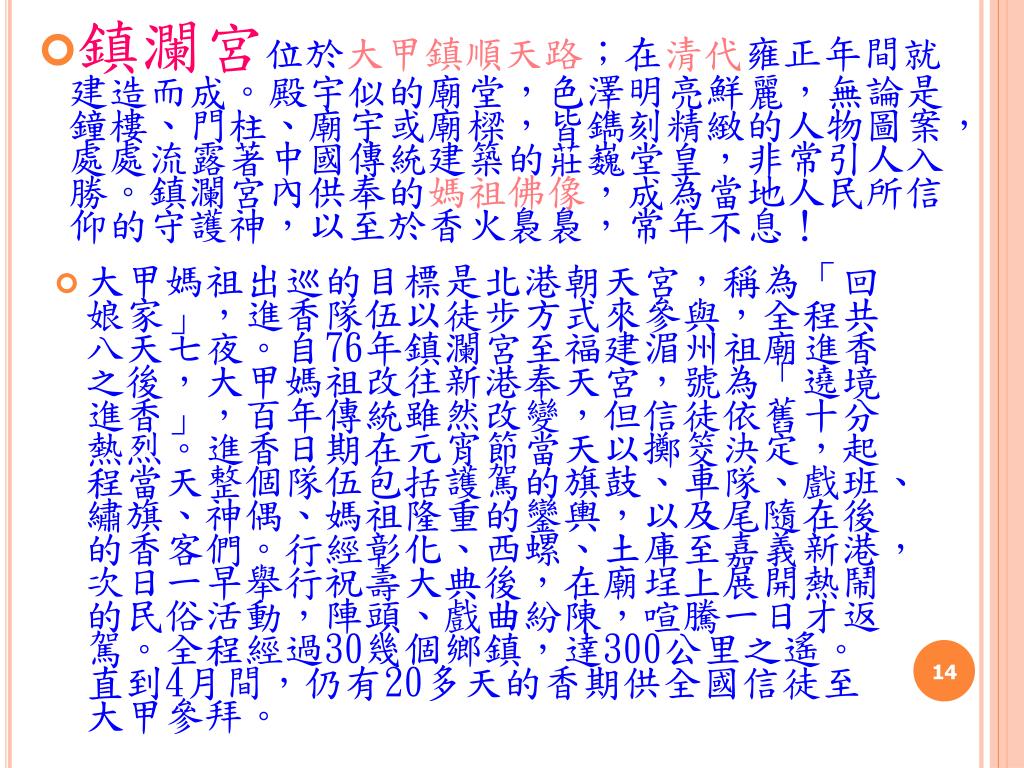 鎮瀾宮位於大甲鎮順天路；在清代雍正年間就
建造而成。殿宇似的廟堂，色澤明亮鮮麗，無論是
鐘樓、門柱、廟宇或廟樑，皆鐫刻精緻的人物圖案，
處處流露著中國傳統建築的莊巍堂皇，非常引人入
勝。鎮瀾宮內供奉的媽祖佛像，成為當地人民所信
仰的守護神，以至於香火裊裊，常年不息！
大甲媽祖出巡的目標是北港朝天宮，稱為「回
娘家」，進香隊伍以徒步方式來參與，全程共
八天七夜。自76年鎮瀾宮至福建湄州祖廟進香
之後，大甲媽祖改往新港奉天宮，號為「遶境
進香」，百年傳統雖然改變，但信徒依舊十分
熱烈。進香日期在元宵節當天以擲筊決定，起
程當天整個隊伍包括護駕的旗鼓、車隊、戲班、
繡旗、神偶、媽祖隆重的鑾輿，以及尾隨在後
的香客們。行經彰化、西螺、土庫至嘉義新港，
次日一早舉行祝壽大典後，在廟埕上展開熱鬧
的民俗活動，陣頭、戲曲紛陳，喧騰一日才返
駕。全程經過30幾個鄉鎮，達300公里之遙。
直到4月間，仍有20多天的香期供全國信徒至
大甲參拜。
14